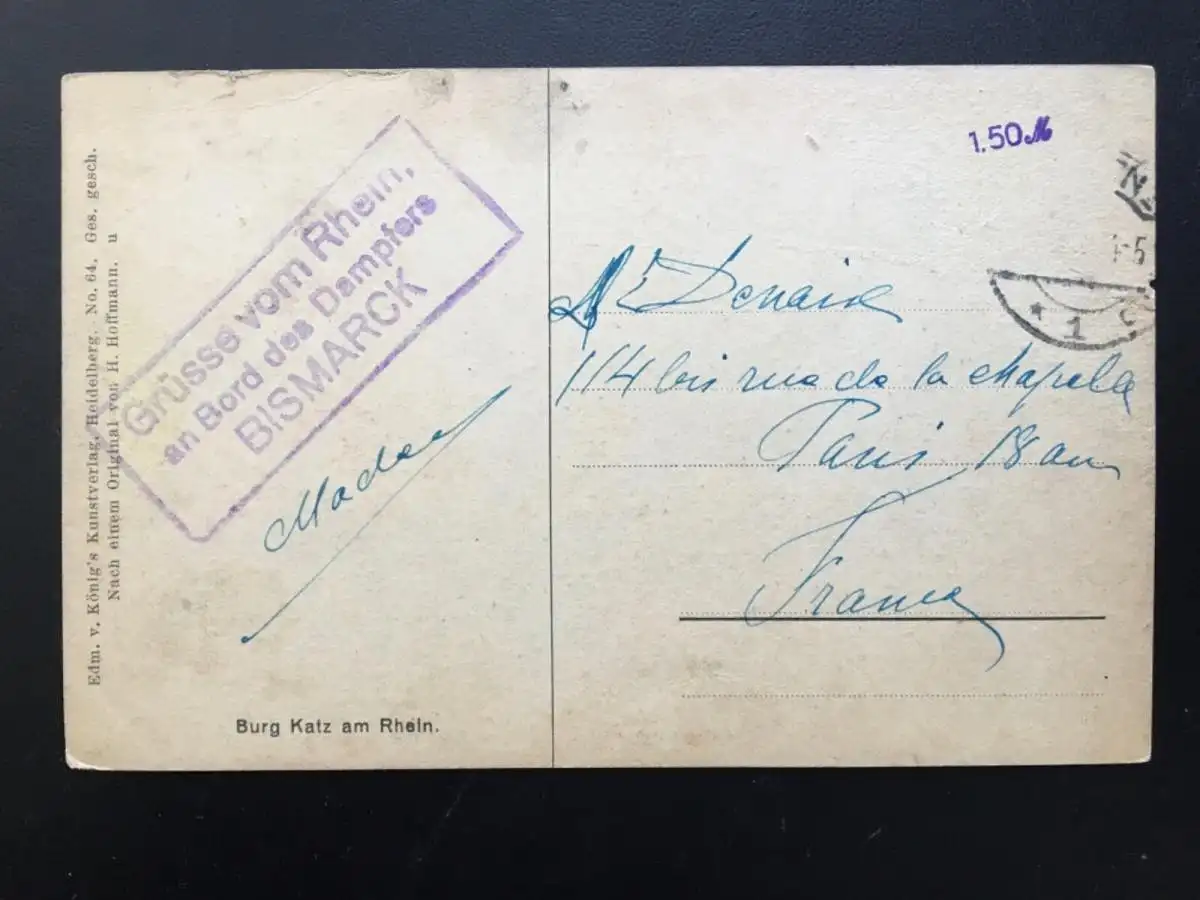 Edm. v. König's Kunstverlag, Heidelberg. No. 64. Ges. gesch.
Nach einem Original von H. Hoffmann. u
Grüsse vom Rhein,
an Bord des Dampfers
BISMARCK
Burg Katz am Rhein.
1.50 M
114 bis rue de la chapelle
Paris 18
France
* 1 c